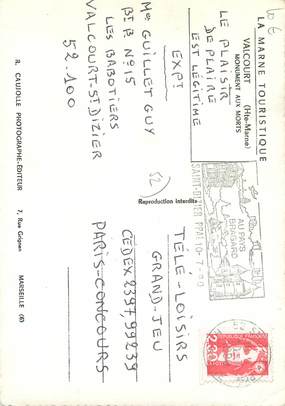 LA MARNE TOURISTIQUE
VALCOURT (Hte-Marne)
MONUMENT AUX MORTS
10 €
LE PLAISIR
DE PLAIRE
EST LÉGITIME
EXPT
Mr GUILLET GUY
Bt B No 15
LES BABOTIERS
VALCOURT-St DIZIER
52.100
52
Reproduction interdite
R. CAUJOLLE PHOTOGRAPHE-ÉDITEUR
7, Rue Grignan
MARSEILLE (6)
SAINT-DIZIER PPAL
10-7-90
AU PAYS
BRAGARD
REPUBLIQUE FRANÇAISE
2,30
LA POSTE
TÉLÉ-LOISIRS
GRAND-JEU
CEDEX 2397,99239
PARIS-CONCOURS